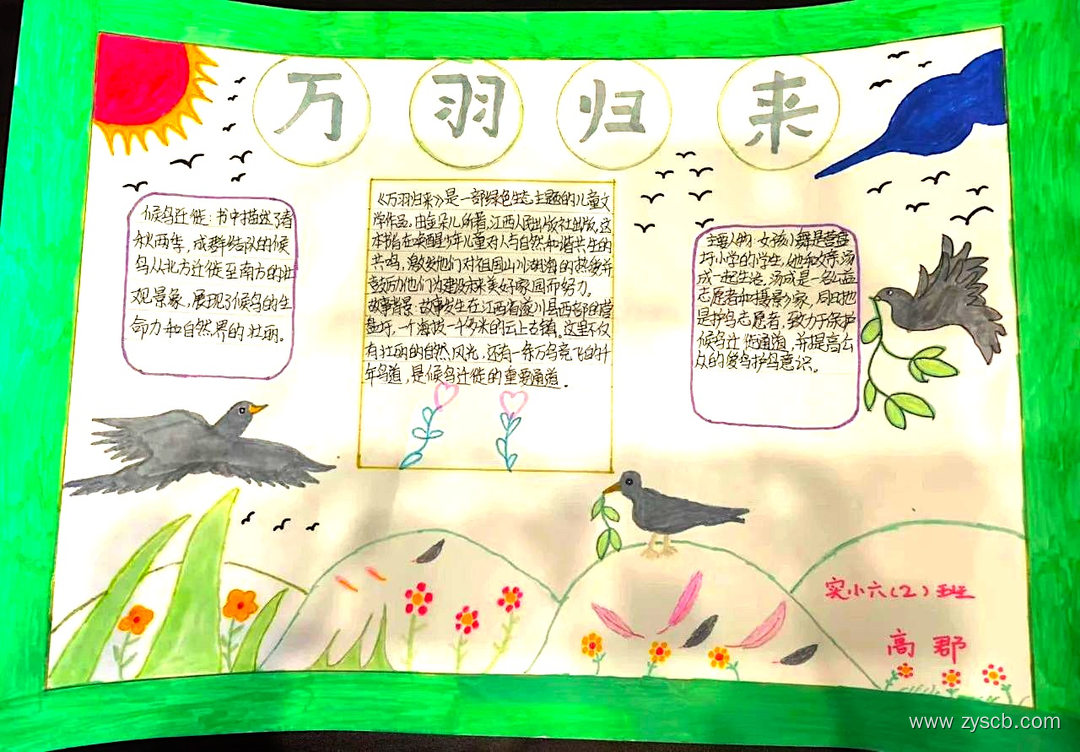 万羽归来
候鸟迁徙：书中描述了春
秋两季，成群结队的候
鸟从北方迁徙至南方的壮
观景象，展现了候鸟的生
命力和自然界的壮丽。
《万羽归来》是一部绿色生态主题的儿童文
学作品，由金朵儿所著，江西人民出版社出版。这
本书旨在唤醒少年儿童对人与自然和谐共生的
共鸣，激发他们对祖国山川湖海的热爱并
鼓励他们为建设未来美好家园而努力。
故事背景：故事发生在江西省遂川县西部的营
盘圩，一个海拔一千多米的云上古镇，这里不仅
有壮丽的自然风光，还有一条万鸟竞飞的千
年鸟道，是候鸟迁徙的重要通道。
主要人物：女孩小舞是营盘
圩小学的学生，她和父亲汤
成一起生活。汤成是一名
志愿者和摄影家，同时也
是护鸟志愿者，致力于保护
候鸟迁徙通道，并提高公
众的爱鸟护鸟意识。
实小六(2)班
高郡
www.zyscb.com